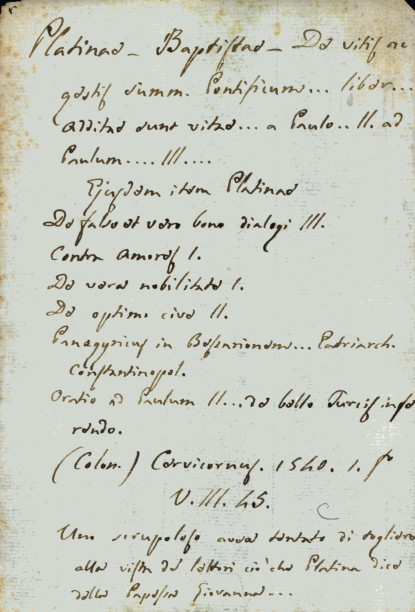 Platinae - Baptistae - De vitis ac
gestis summ. Pontificum... liber...
additae sunt vitae... a Paulo.. II. ad
Paulum.... III....
Ejusdem item Platinae
De falso et vero bono dialogi III.
Contra Amores I.
De vera nobilitate I.
De optimo cive II.
Panegyricus in Bessarionem... Patriarch.
Constantinopol.
Oratio ad Paulum II... de bello Turcis infe
rendo.
(Colon.) Cervicornus. 1540. 1. fo
V. III. 45.
Uno scrupoloso aveva tentato di togliere
alla vista de' lettori ciò che Platina dice
della Papessa Giovanna...